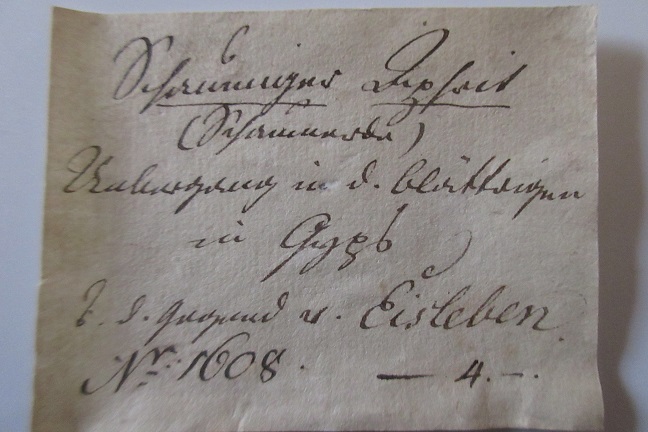 Schaumiger Aphrit
(Schaumerde)
Uebergang in d. blättrigen
in Gyps
I. d. Gegend v. Eisleben.
Nr. 1608. — 4. —.